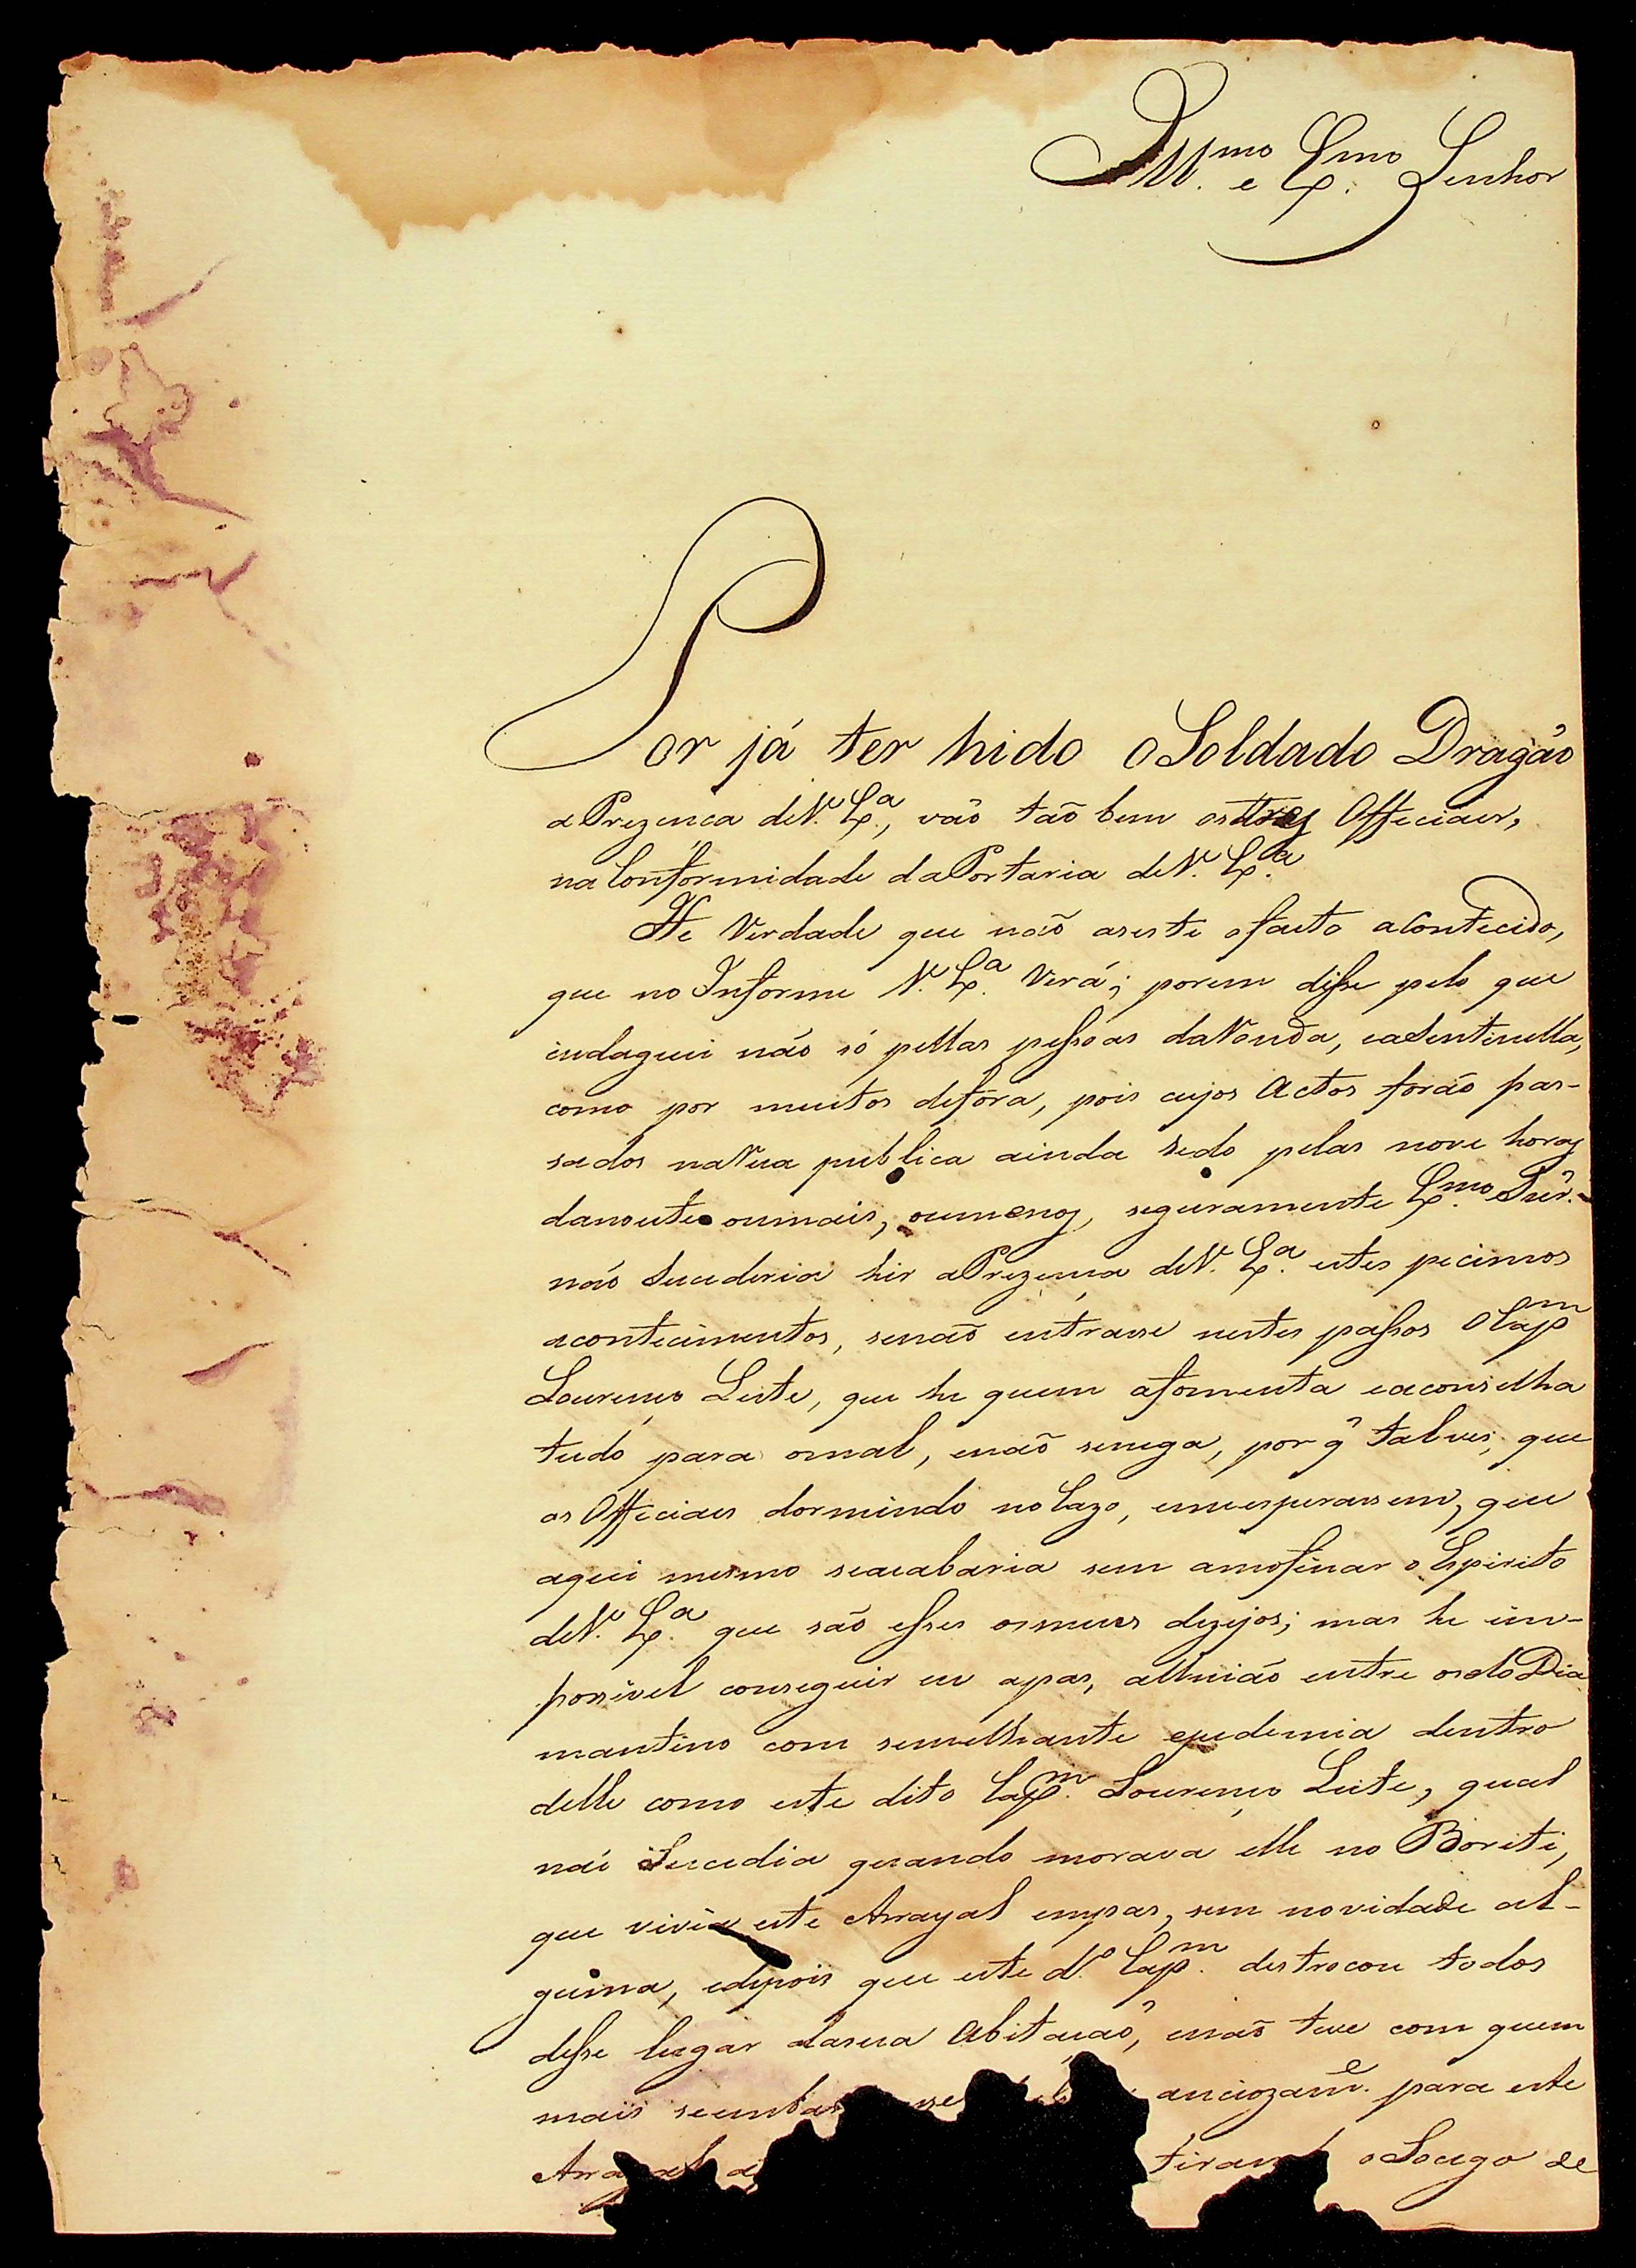 Ill.mo e Ex.mo Senhor
Por já ter hido o Soldado Dragão
a Prezenca de V. Ex.a, vaõ taõ bem os tres Officiaes,
na Conformidade da Portaria de V. Ex.a
He Verdade que naõ aseste o facto acontecido,
que no Informe V. Ex.a Verá; porem disse pelo que
indaguei não só pellas pessoas da Ronda, e a Sentinella,
como por muitos defóra, pois cujos Actos foráo pas-
sados na Rua publica ainda sedo pelas nove horas
da noute ou mais, ou menos, seguramente Ex.mo Snr.
não Sucederia hir a Prezença de V. Ex.a estes pecimos
acontecimentos, senaõ entrasse nestes passos o Cap.m
Lourenço Leite, que he quem afomenta e aconselha
tudo para o mal, e naõ senega, por q̃ talves, que
os Officiaes dormindo no Cazo, e me esperassem, que
aqui mesmo se acabaria sem amofinar o Espirito
de V. Ex.a que são esses os meus dezejos; mas he im-
possivel conseguir eu a pas, a Uniáo entre os do Dia
mantino com semelhante epedemia dentro
delle como este dito Cap.m Lourenço Leite, qual
não Sucedia quando morava elle no Boriti,
que vivia este Arrayal em pas, sem novidade al-
guma, e depois que este d.o Cap.m destrocou todos
desse lugar da sua Abitaçaõ, e naõ teve com quem
mais se emba anciozam.e para este
Arrayal tirand o Socego de